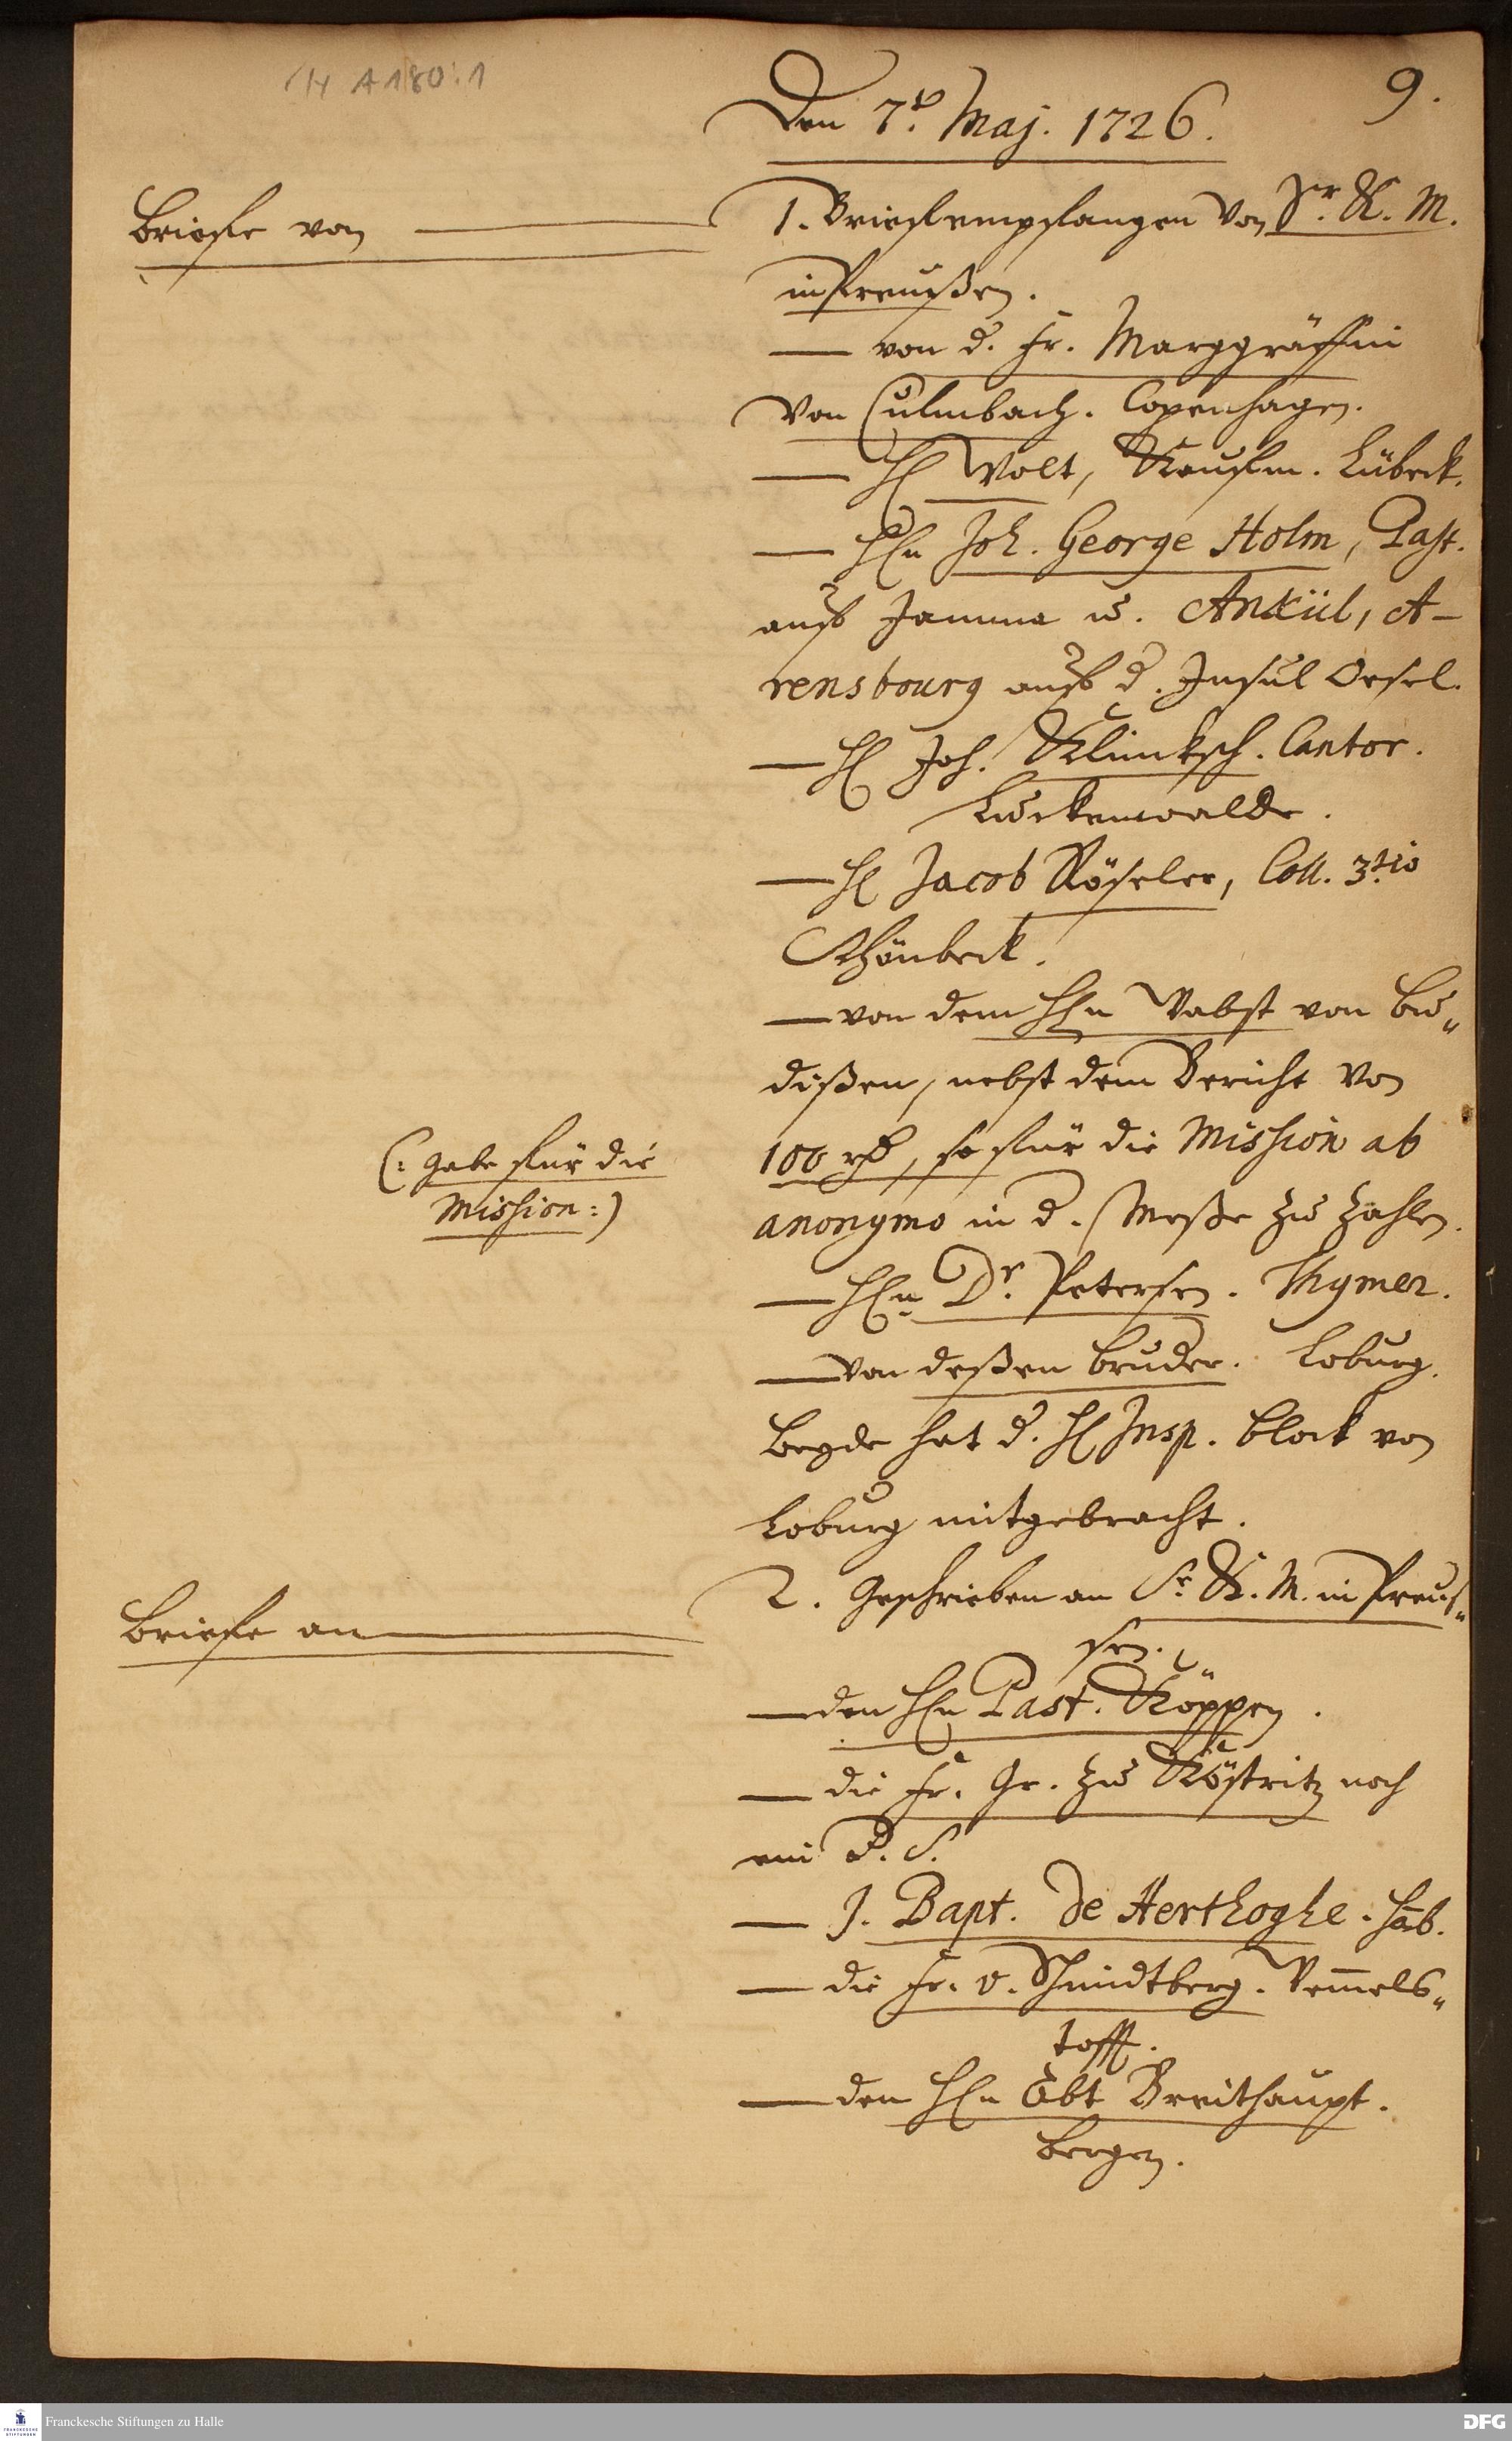 H A 180:1
9.
Den 7.t Maj. 1726.
Briefe von
1. Brief empfangen von Sr. K. M.
in Preußen.
— von d. Fr. Marggräffin
von Culmbach. Copenhagen.
— H Wolt, Kaufm. Lübeck.
— HEn Joh. George Holm, Past.
auß Jamma u. Ankül, A-
rensbourg auß d. Insul Oesel.
— H Joh. Klincksch. Cantor.
Luckenwalde.
— H Jacob Röseler, Coll. 3.tio
Schönbeck.
— von dem HEn Vabst von Bu„
dißen, nebst dem Bericht von
(: Gabe für die
Mission :)
100 rh, so für die Mission ab
anonymo in d. Meße zu zahlen.
— HEn Dr. Petersen. Thymer.
— von deßen Bruder. Loburg.
Beyde hat d. H Insp. Block von
Loburg mitgebracht.
Briefe an
2. Geschrieben an Sr. K. M. in Preus„
sen.
— den HEn Past. Köppen.
— die Fr. Gr. zu Köstritz noch
ein P. S.
— J. Bapt. de Herthoghe. Hãb.
— die Fr. v. Schmidtberg. Vem̃els„
tofft.
— den HEn Abt Breithaupt.
Bergen.
Franckesche Stiftungen zu Halle
DFG